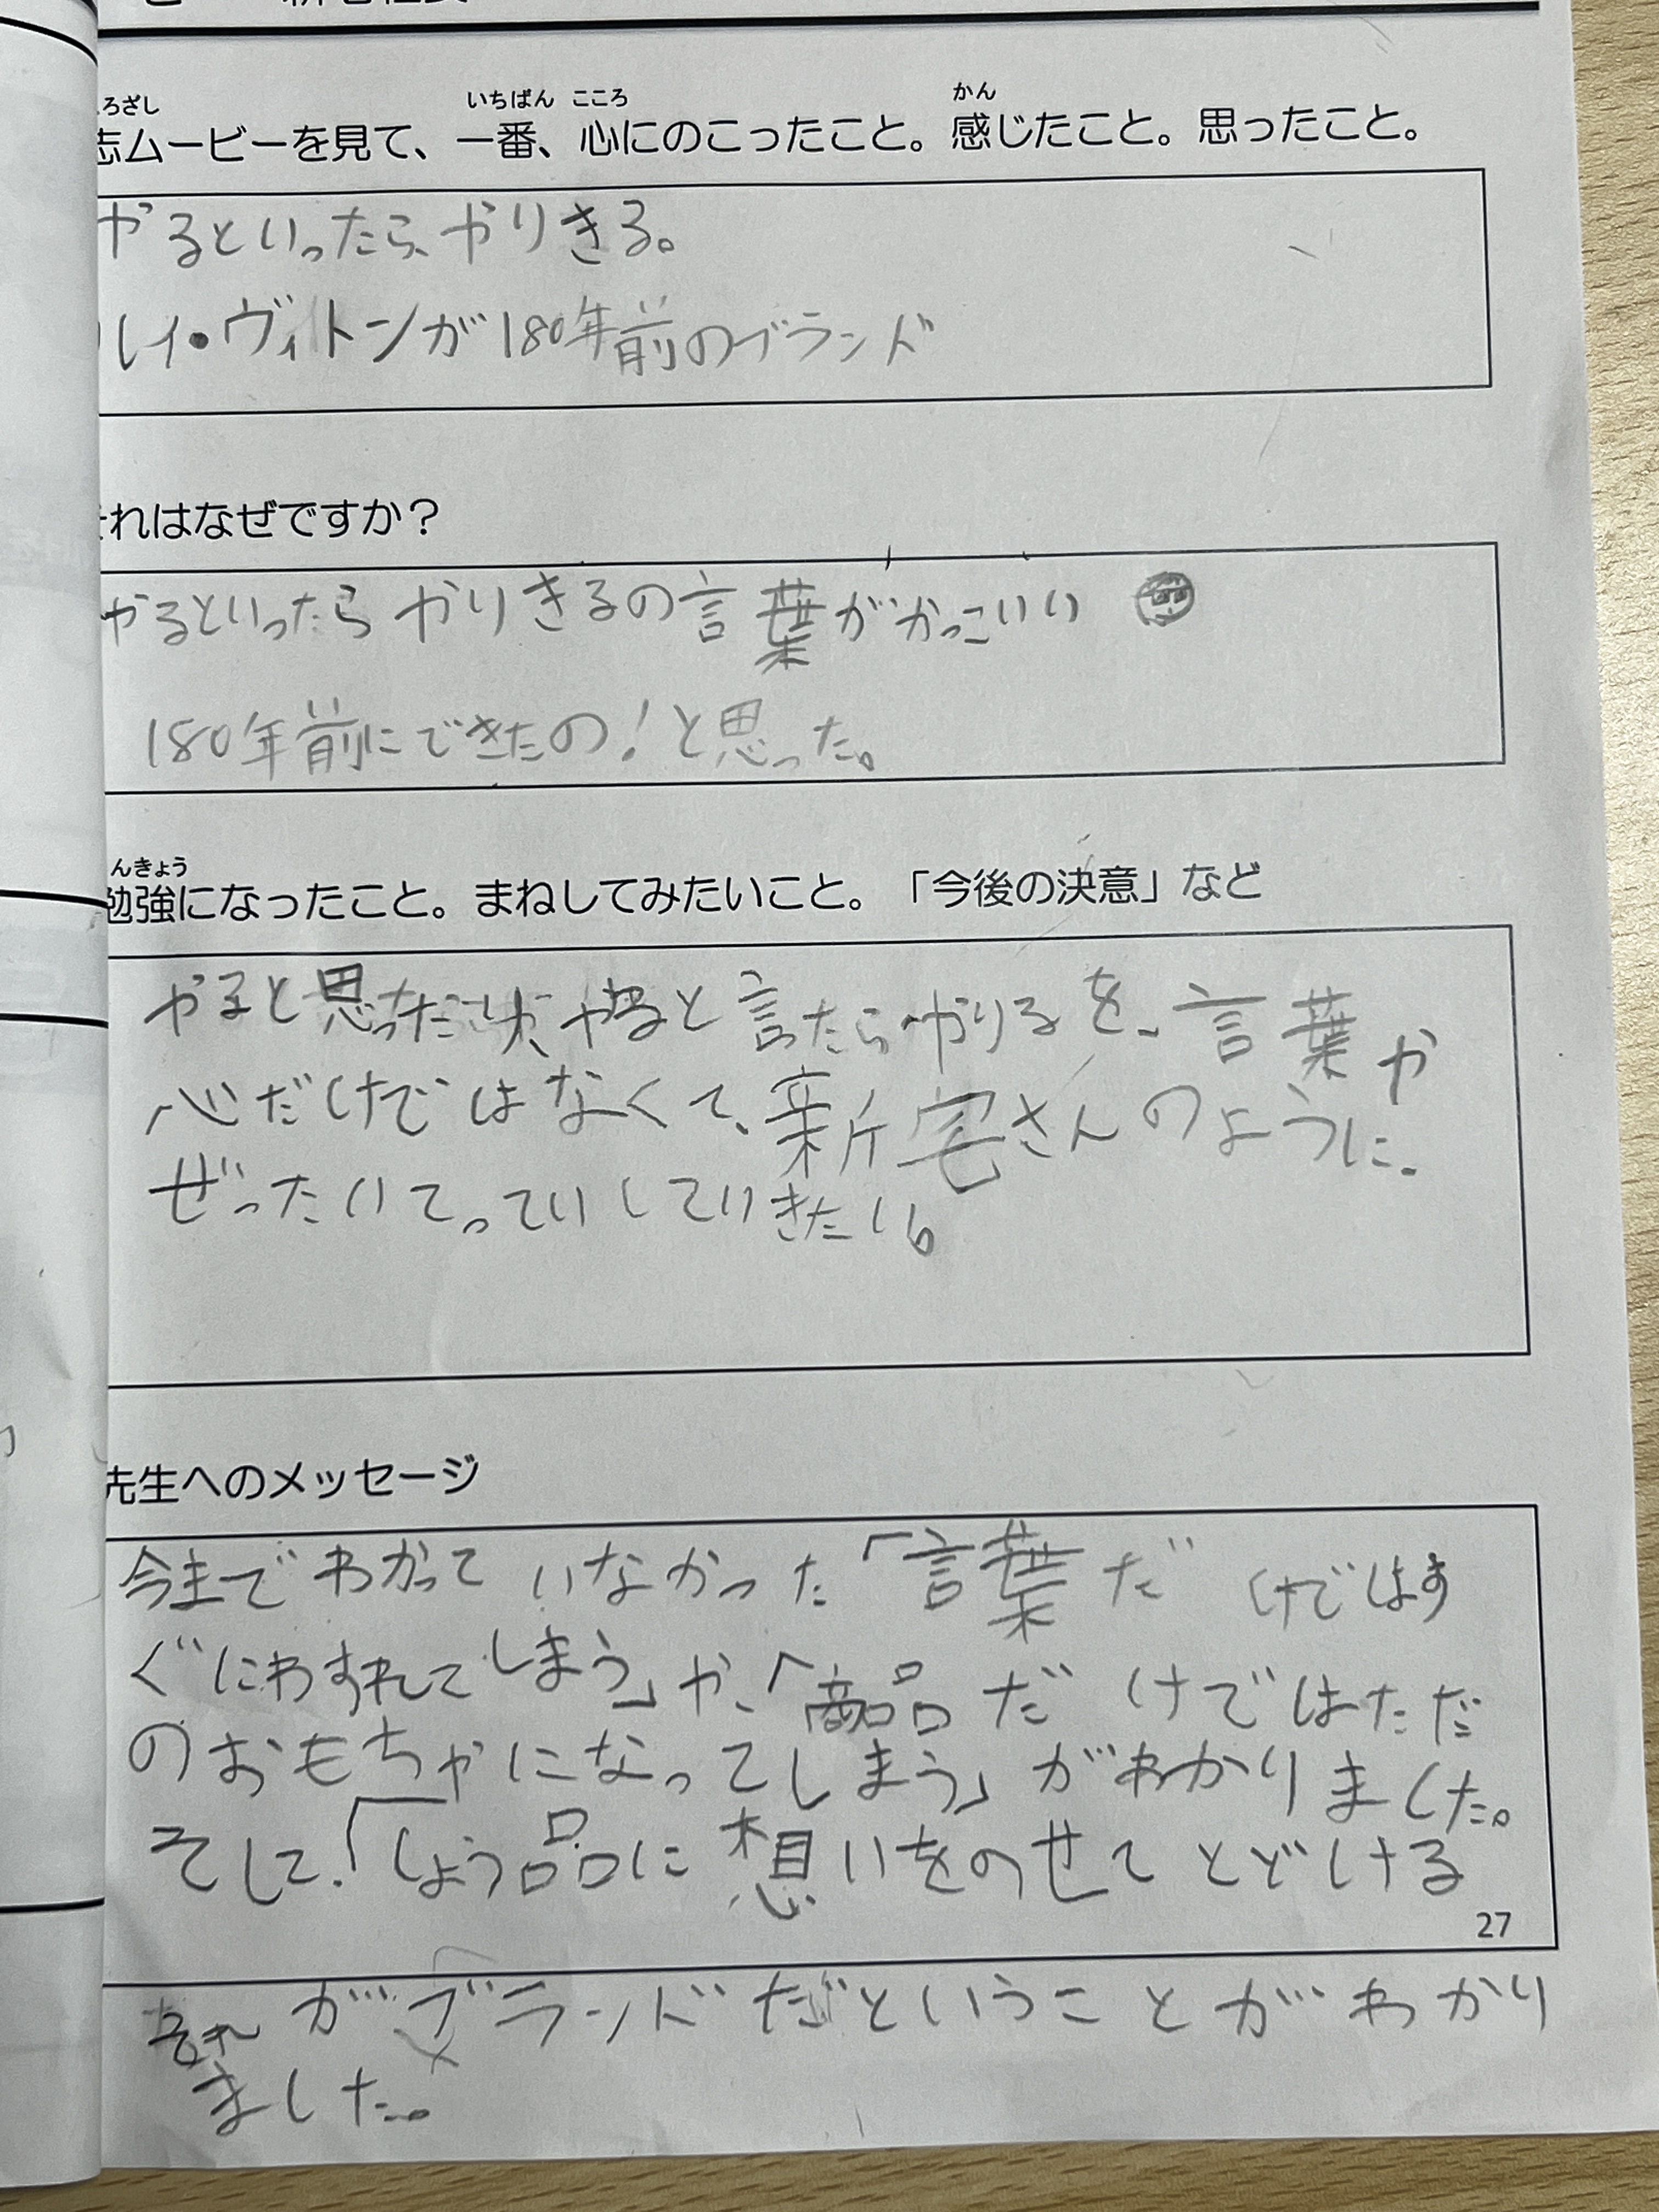 ろざし いちばん こころ かん
志ムービーを見て、一番、心にのこったこと。感じたこと。思ったこと。
やるといったら、やりきる。
ルイ・ヴィトンが180年前のブランド
それはなぜですか？
やるといったらやりきるの言葉がかっこいい
180年前にできたの！と思った。
んきょう
勉強になったこと。まねしてみたいこと。「今後の決意」など
やると思った やると言たらやりるを、言葉や
心だけではなくて、新宅さんのように、
ぜったいてっていしていきたい。
先生へのメッセージ
今までわかっていなかった「言葉だけではす
ぐにわすれてしまう」や、「商品だけではただ
のおもちゃになってしまう」がわかりました。
そして、「しょう品に想いをのせてとどける
27
それがブランドだということがわかり
ました。